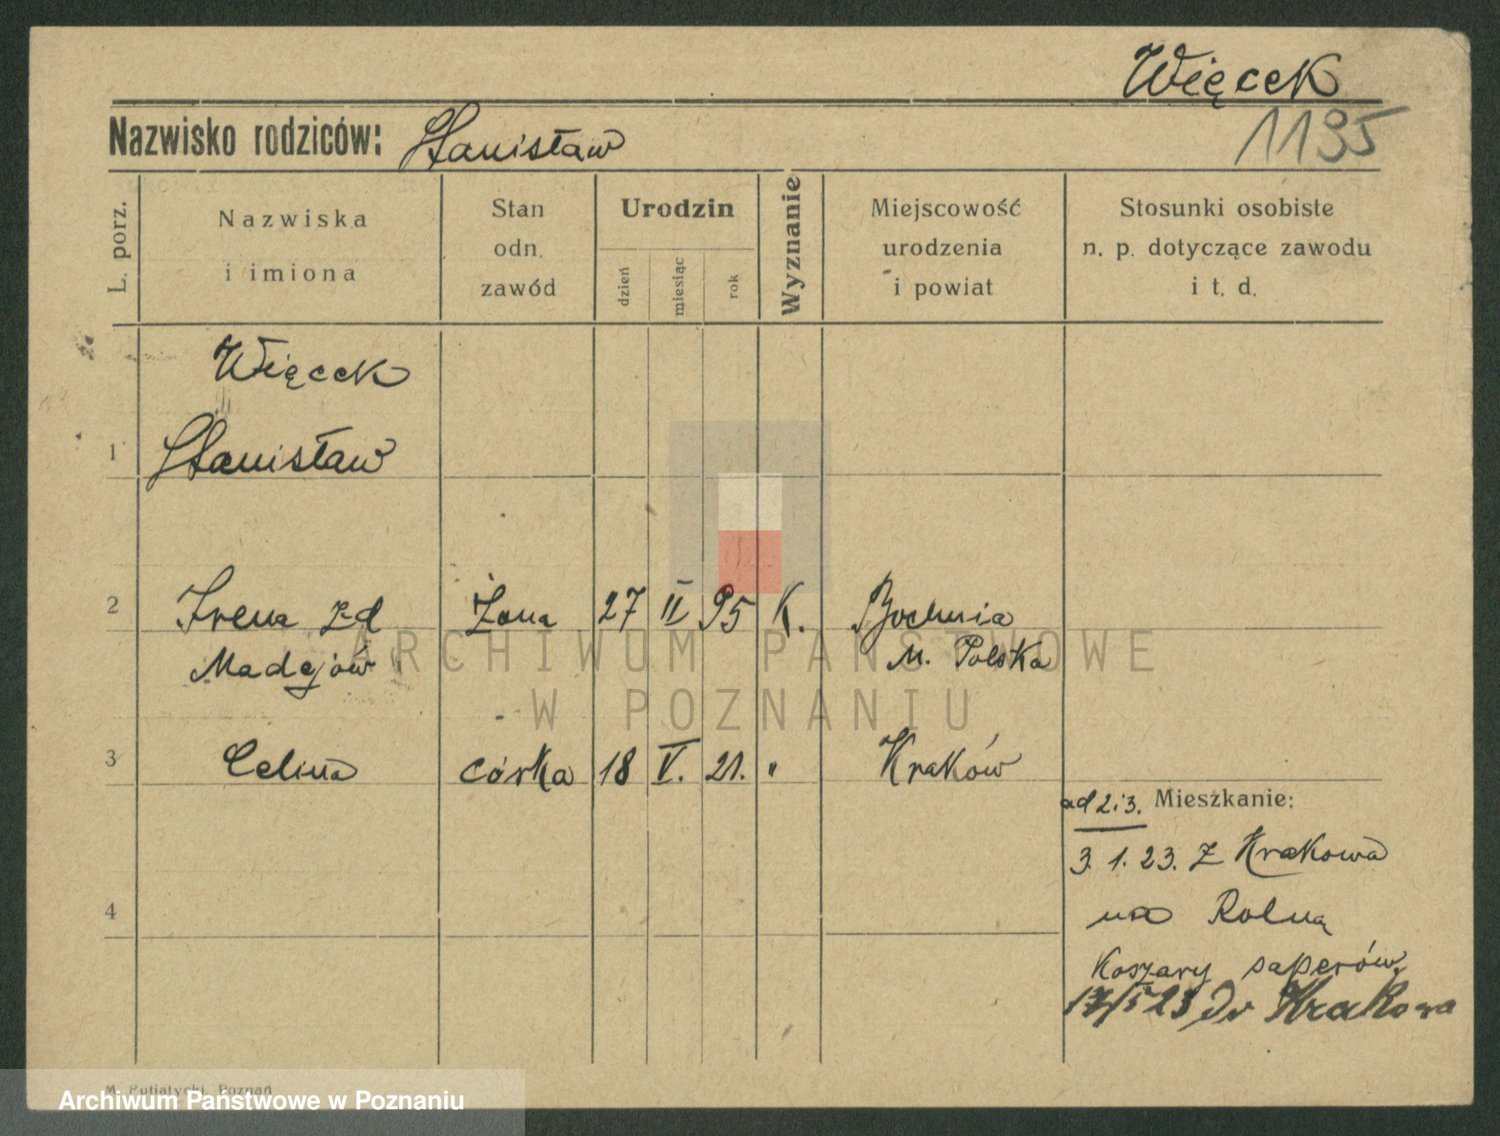 Więcek
Nazwisko rodziców: Stanisław
1195
L. porz.
Nazwiska
i imiona
Stan
odn.
zawód
Urodzin
dzień
miesiąc
rok
Wyznanie
Miejscowość
urodzenia
i powiat
Stosunki osobiste
n. p. dotyczące zawodu
i t. d.
Więcek
1 Stanisław
2 Irena zd Żona 27 II 95 K. Bochnia
Madejów M. Polska
3 Celina córka 18 V. 21. " Kraków
ad 2i3. Mieszkanie:
3. 1. 23. z Krakowa
na Rolną
4
Koszary saperów
17/5 23 Do Krakowa
ARCHIWUM PAŃSTWOWE
W POZNANIU
M. Putiatycki, Poznań
Archiwum Państwowe w Poznaniu